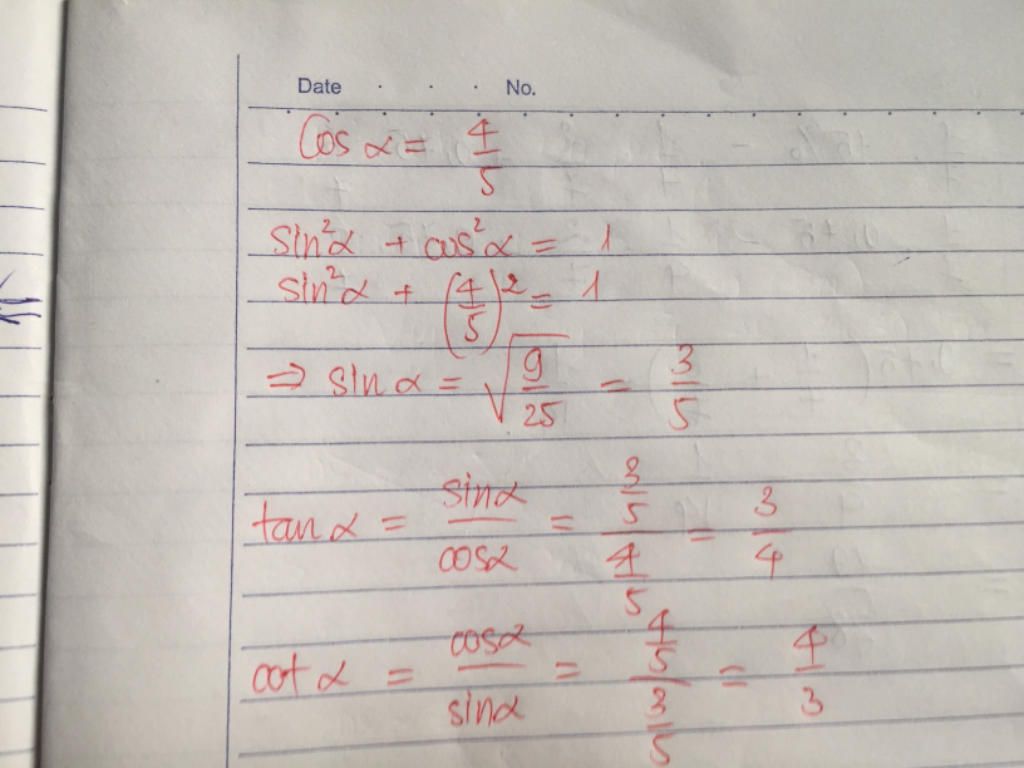 Date . . . No.
Cos α = 4/5
sin²α + cos²α = 1
sin²α + (4/5)² = 1
⇒ sin α = √(9/25) = 3/5
tan α = sinα/cosα = (3/5)/(4/5) = 3/4
cot α = cosα/sinα = (4/5)/(3/5) = 4/3